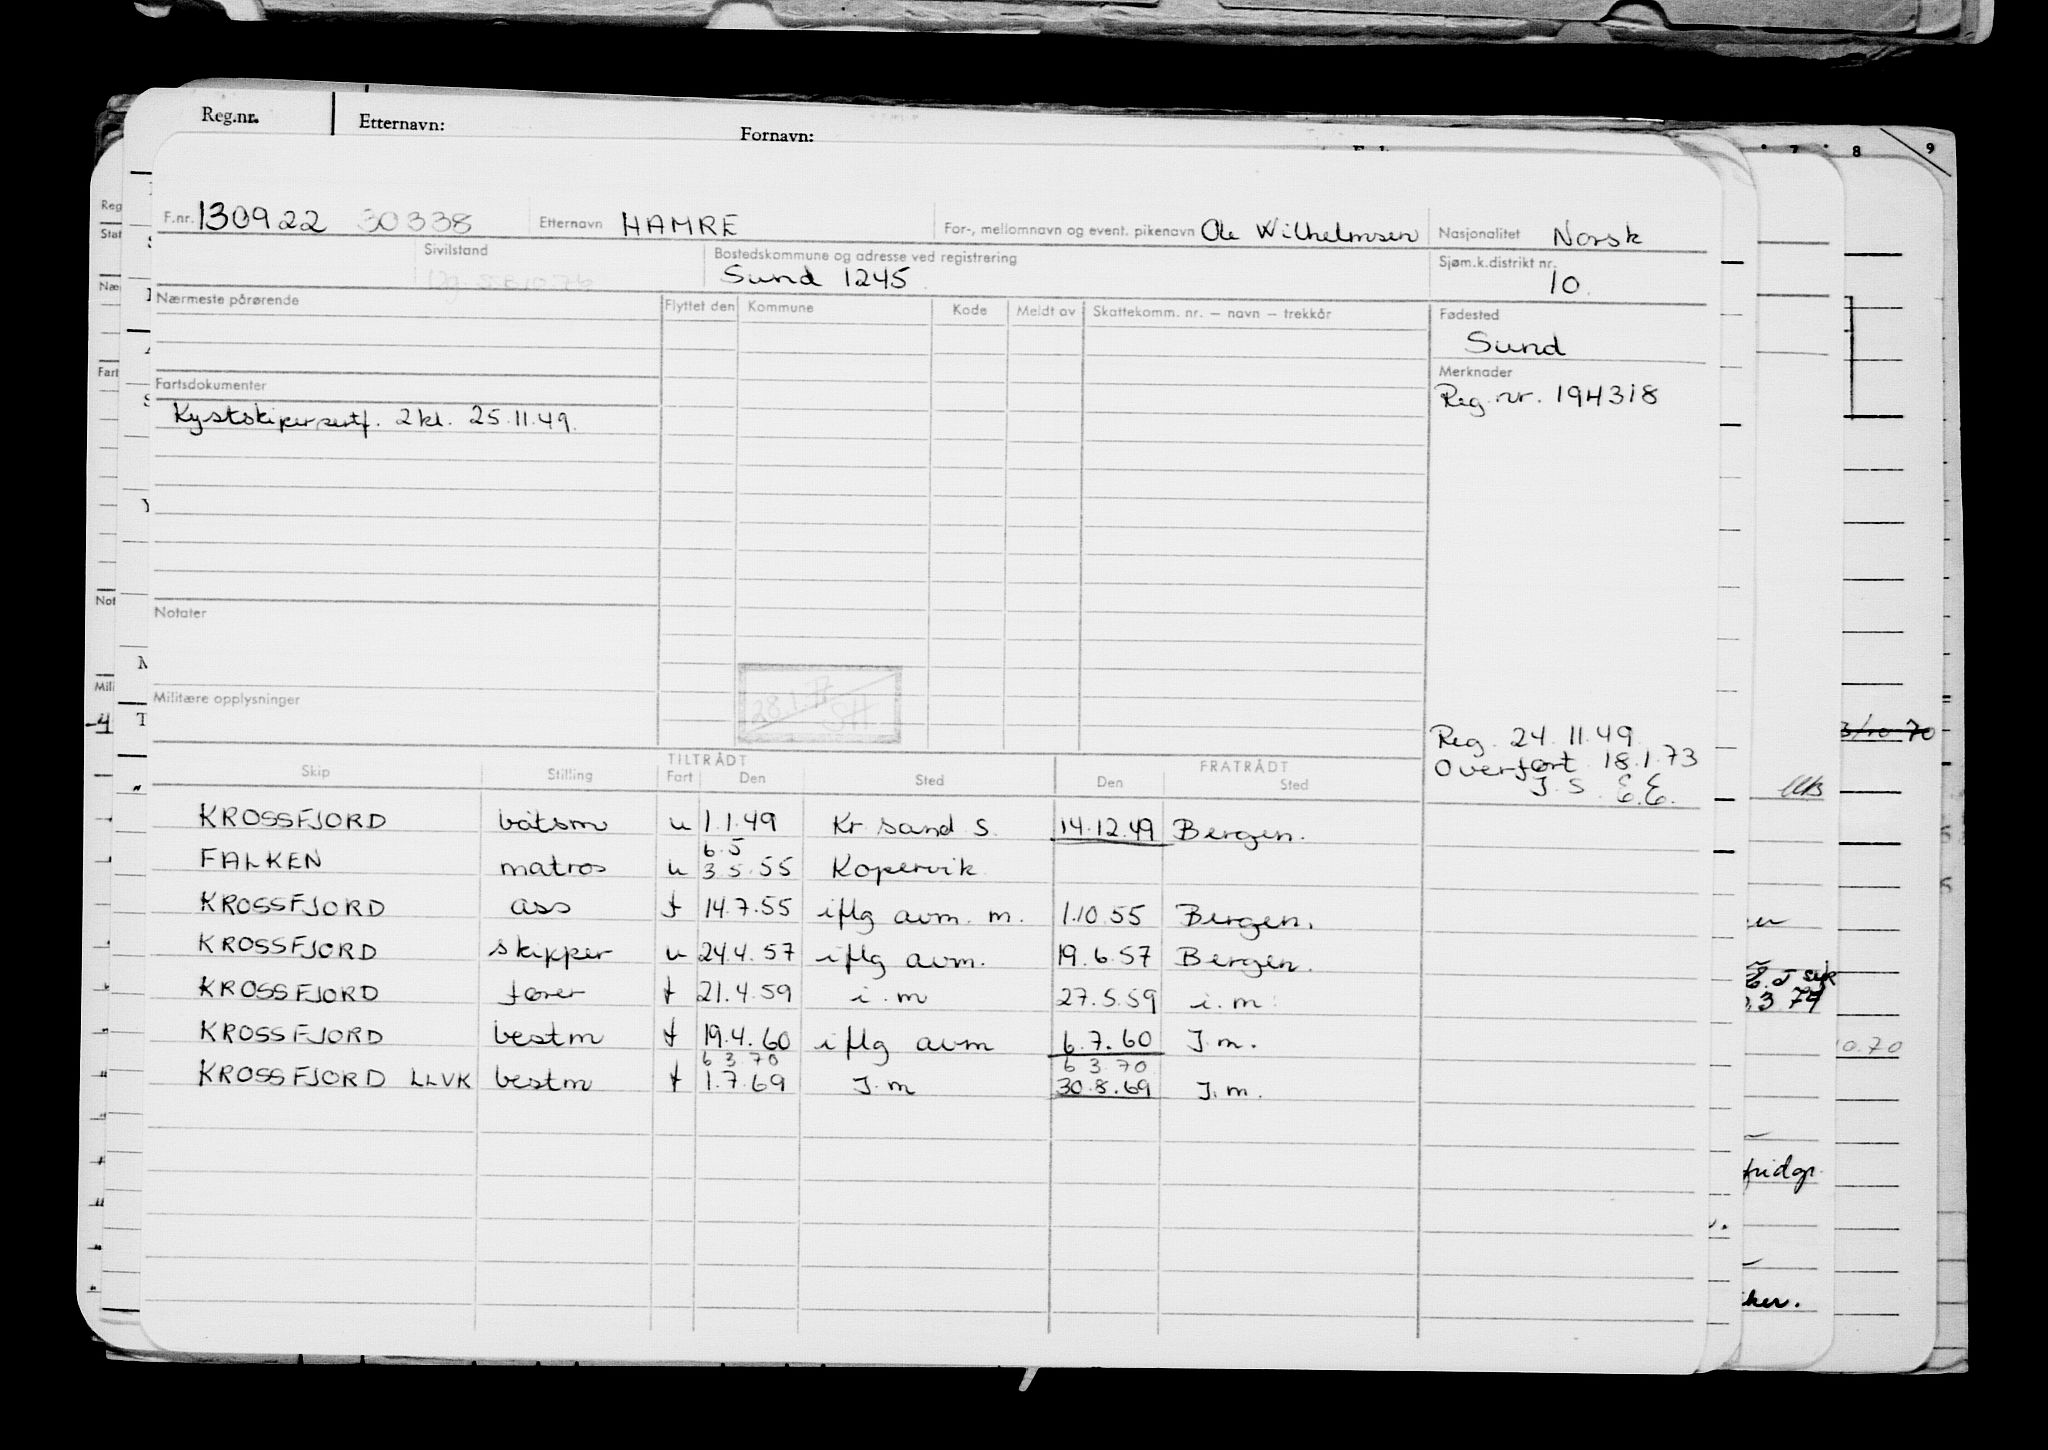 Reg.nr. Etternavn: Fornavn:
7 8 9
F.nr. 130922 30338 Etternavn HAMRE For-, mellomnavn og event. pikenavn Ole Wilhelmsen Nasjonalitet Norsk
Sivilstand Bostedskommune og adresse ved registrering Sjøm.k.distrikt nr.
Sund 1245 10
Nærmeste pårørende Flyttet den Kommune Kode Meldt av Skattekomm. nr. – navn – trekkår Fødested
Sund
Fartsdokumenter Merknader
Kystskipersertf. 2 kl. 25.11.49. Reg. nr. 194318
Notater
28.1.
Militære opplysninger
Reg. 24.11.49.
Overført 18.1.73
J.S. E.E.
TILTRÅDT FRATRÅDT
Skip Stilling Fart Den Sted Den Sted
KROSSFJORD båtsm u 1.1.49 Kr sand S. 14.12.49 Bergen.
6.5
FALKEN matros u 3.5.55 Kopervik
KROSSFJORD ass f 14.7.55 iflg avm. m. 1.10.55 Bergen.
KROSSFJORD skipper u 24.4.57 iflg avm. 19.6.57 Bergen.
KROSSFJORD fører f 21.4.59 i.m 27.5.59 i.m.
KROSSFJORD bestm f 19.4.60 iflg avm 6.7.60 J.m.
6 3 70 6 3 70
KROSSFJORD LLVK bestm f 1.7.69 J.m 30.8.69 J.m.